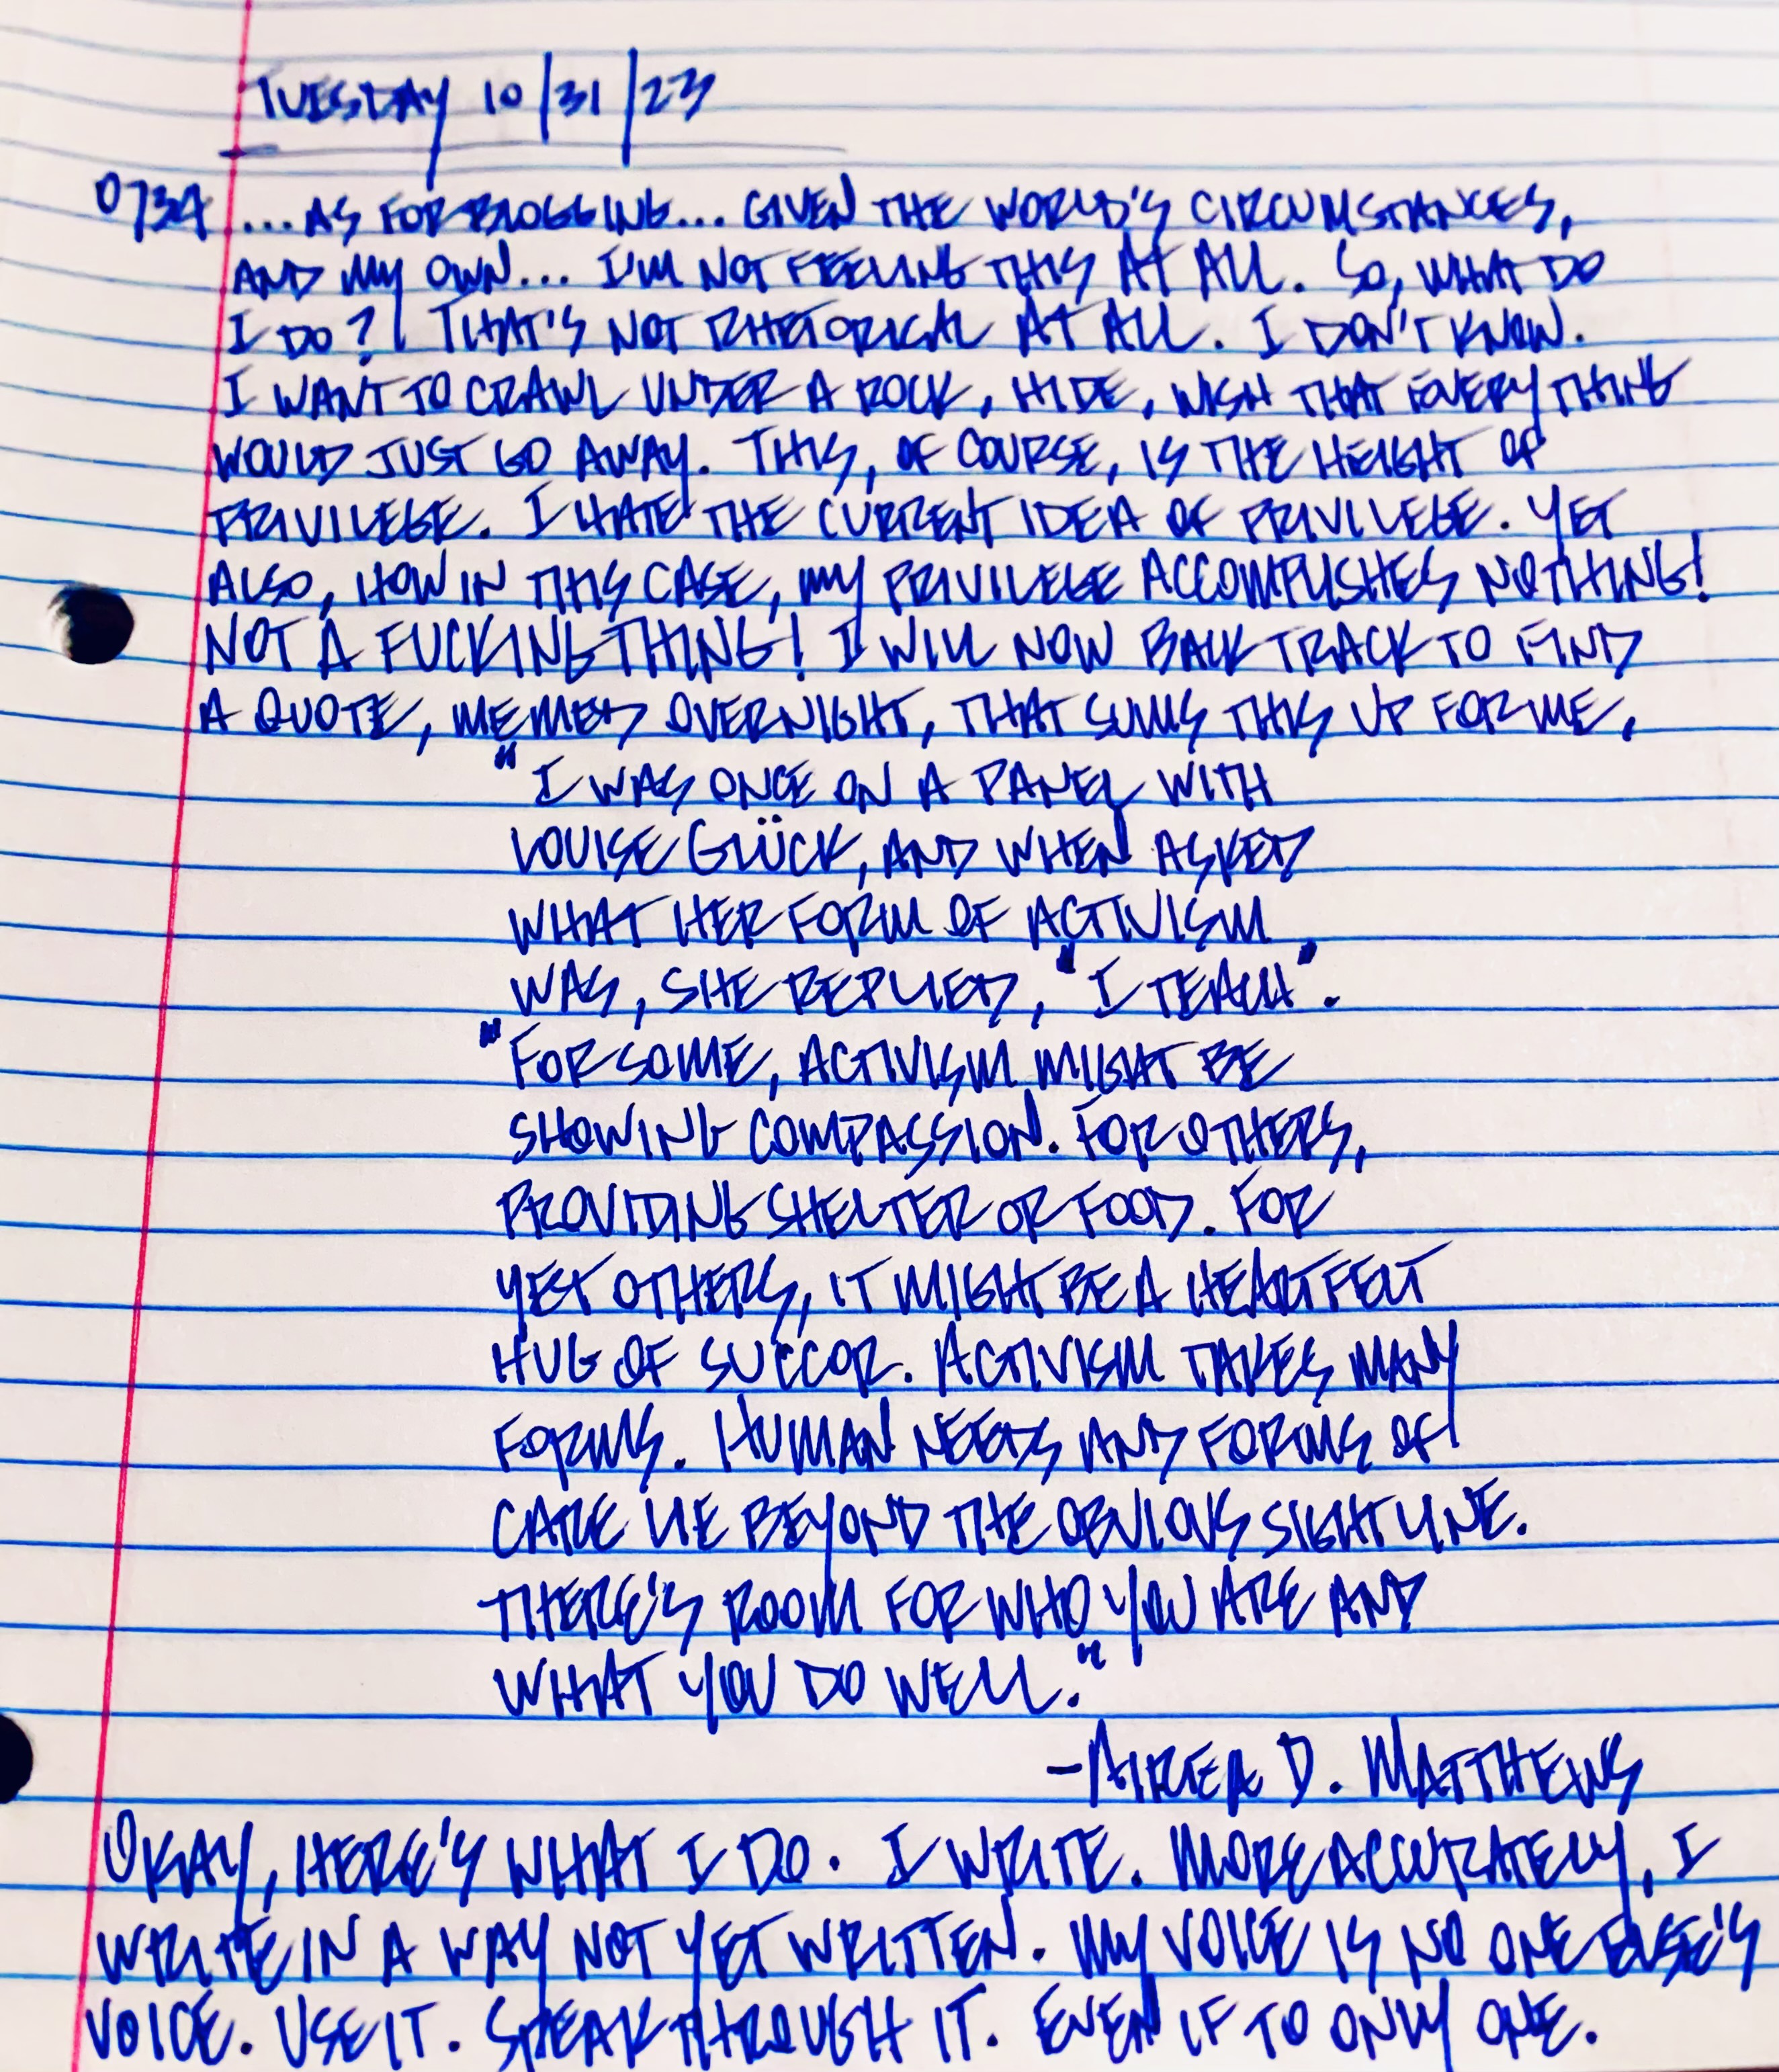 TUESDAY 10/31/23
0734 ...AS FOR BLOGGING... GIVEN THE WORLD'S CIRCUMSTANCES,
AND MY OWN... I'M NOT FEELING THIS AT ALL. SO, WHAT DO
I DO? THAT'S NOT RHETORICAL AT ALL. I DON'T KNOW.
I WANT TO CRAWL UNDER A ROCK, HIDE, WISH THAT EVERYTHING
WOULD JUST GO AWAY. THIS, OF COURSE, IS THE HEIGHT OF
PRIVILEGE. I HATE THE CURRENT IDEA OF PRIVILEGE. YET
ALSO, HOW IN THIS CASE, MY PRIVILEGE ACCOMPLISHES NOTHING!
NOT A FUCKING THING! I WILL NOW BACK TRACK TO FIND
A QUOTE, MEMED OVERNIGHT, THAT SUMS THIS UP FOR ME,
"I WAS ONCE ON A PANEL WITH
LOUISE GLÜCK, AND WHEN ASKED
WHAT HER FORM OF ACTIVISM
WAS, SHE REPLIED, "I TEACH".
"FOR SOME, ACTIVISM MIGHT BE
SHOWING COMPASSION. FOR OTHERS,
PROVIDING SHELTER OR FOOD. FOR
YET OTHERS, IT MIGHT BE A HEARTFELT
HUG OF SUCCOR. ACTIVISM TAKES MANY
FORMS. HUMAN NEEDS AND FORMS OF
CARE LIE BEYOND THE OBVIOUS SIGHTLINE.
THERE'S ROOM FOR WHO YOU ARE AND
WHAT YOU DO WELL."
-AIREA D. MATTHEWS
OKAY, HERE'S WHAT I DO. I WRITE. MORE ACCURATELY, I
WRITE IN A WAY NOT YET WRITTEN. MY VOICE IS NO ONE ELSE'S
VOICE. USE IT. SPEAK THROUGH IT. EVEN IF TO ONLY ONE.